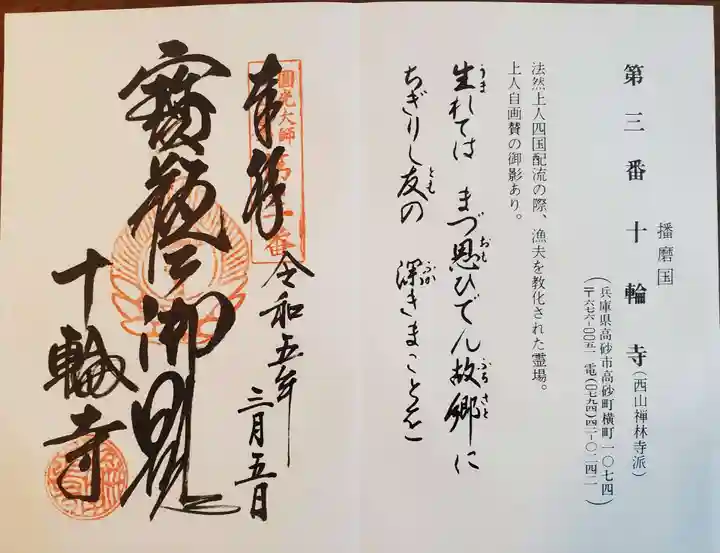 播磨国
第三番 十輪寺(西山禅林寺派)
(兵庫県高砂市高砂町横町一〇七四
〒六七六-〇〇五一 電(〇七九四)四二-〇二四二)
法然上人四国配流の際、漁夫を教化された霊場。
上人自画賛の御影あり。
生れては まづ思ひでん 故郷に
うま おも ふる さと
ちぎりし友の 深きまことを
とも ふか
圓光大師
奉拝
令和五年 三月五日
十輪寺